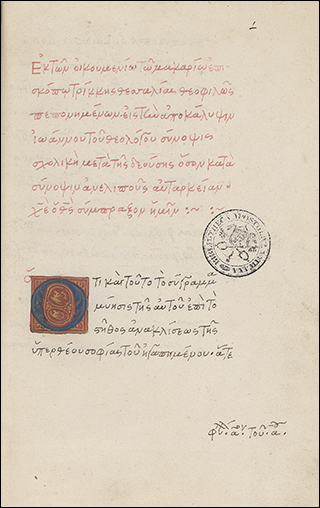 Ἐκ τῶν οἰκουμενίω τῶ μακαρίω ἐπι
σκόπω τρίκκης θεσσαλίας θεοφιλῶς
πεπονημένων εἰς τὴν ἀποκάλυψιν
ἰωάννου τοῦ θεολόγου σύνοψις
σχολικὴ μετὰ τῆς δεούσης ὅσον κατὰ
σύνοψιν ἀνελιποῦς αὐταρκείας·
χ̅ε̅ ὁ θ̅ς̅ σύμπραξον ἡμῖν :~ :~
Ὅτι καὶ τοῦτο τὸ σύγγραμμα
μύησις τῆς αὐτοῦ ἐπὶ τὸ
στῆθος ἀνακλίσεως τῆς
ὑπερθέου σοφίας τοῦ ἠγαπημένου· ἅτε